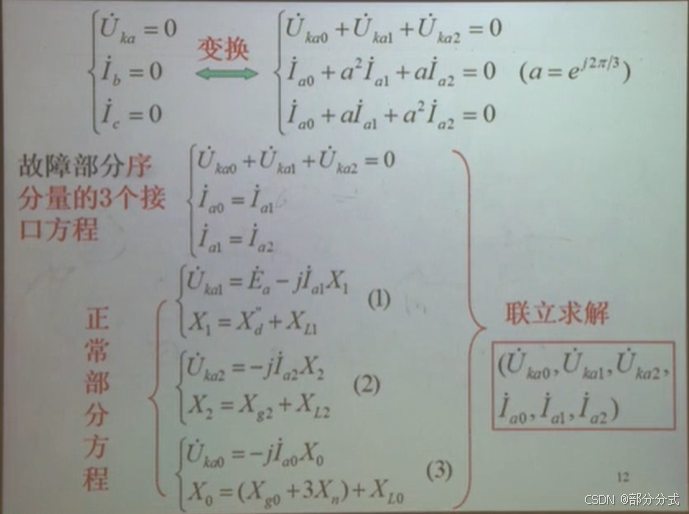 U̇ka = 0
İb = 0
İc = 0
变换
U̇ka0 + U̇ka1 + U̇ka2 = 0
İa0 + a²İa1 + aİa2 = 0 (a = e^{j2π/3})
İa0 + aİa1 + a²İa2 = 0
故障部分序
分量的3个接
口方程
U̇ka0 + U̇ka1 + U̇ka2 = 0
İa0 = İa1
İa1 = İa2
正常部分方程
U̇ka1 = Ėa − jİa1X1
X1 = X″d + XL1
(1)
U̇ka2 = −jİa2X2
X2 = Xg2 + XL2
(2)
U̇ka0 = −jİa0X0
X0 = (Xg0 + 3Xn) + XL0
(3)
联立求解
(U̇ka0, U̇ka1, U̇ka2,
İa0, İa1, İa2)
12
CSDN @部分分式